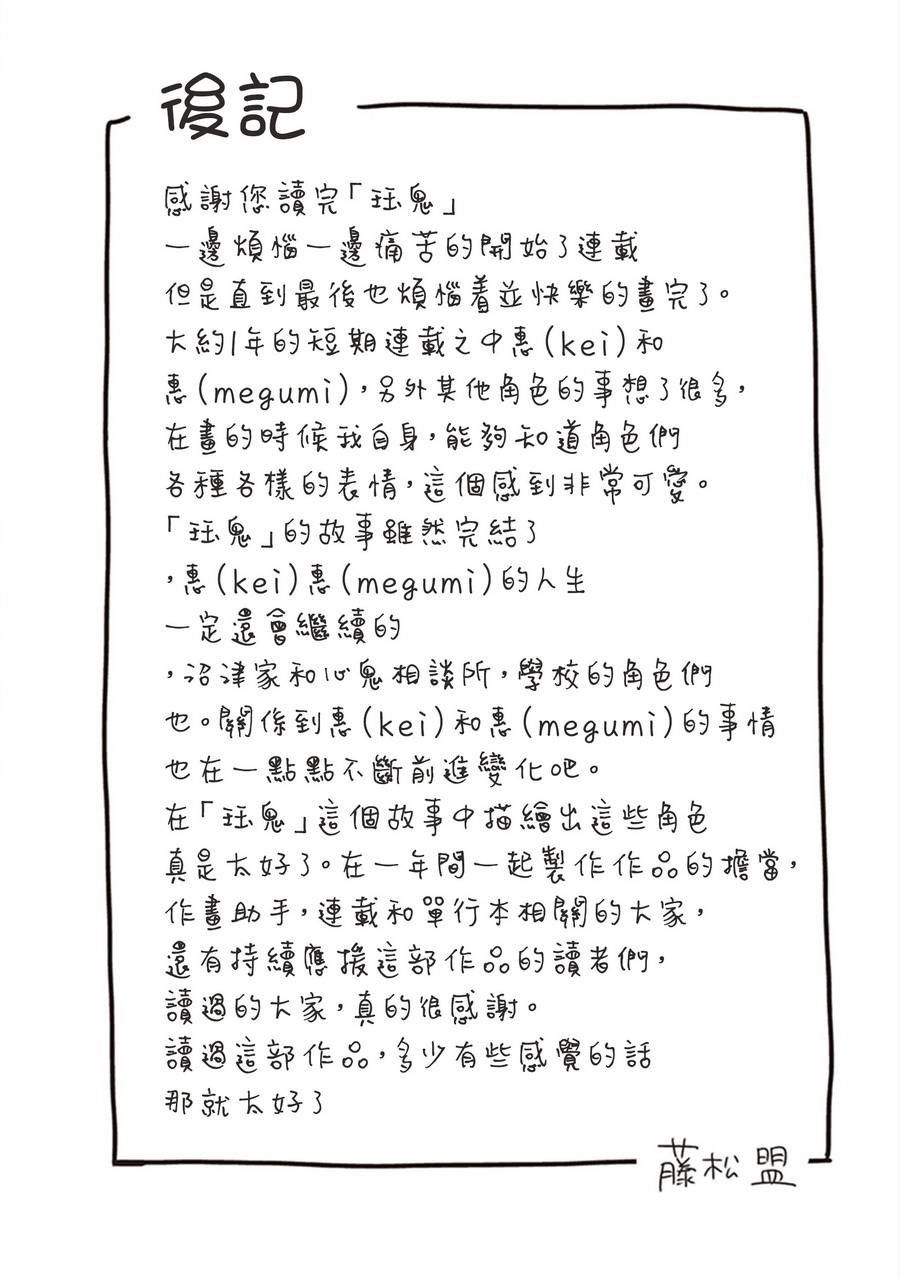 後記
感謝您讀完「珏鬼」
一邊煩惱一邊痛苦的開始了連載
但是直到最後也煩惱着並快樂的畫完了。
大約1年的短期連載之中惠(kei)和
惠(megumi),另外其他角色的事想了很多,
在畫的時候我自身,能夠知道角色們
各種各樣的表情,這個感到非常可愛。
「珏鬼」的故事雖然完結了
,惠(kei)惠(megumi)的人生
一定還會繼續的
,沼津家和心鬼相談所,學校的角色們
也。關係到惠(kei)和惠(megumi)的事情
也在一點點不斷前進變化吧。
在「珏鬼」這個故事中描繪出這些角色
真是太好了。在一年間一起製作作品的擔當,
作畫助手,連載和單行本相關的大家,
還有持續應援這部作品的讀者們,
讀過的大家,真的很感謝。
讀過這部作品,多少有些感覺的話
那就太好了
藤松盟